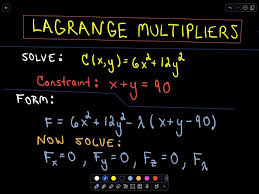 LAGRANGE MULTIPLIERS
SOLVE: C(x,y)=6x²+12y²
Constraint: x+y=90
FORM:
F=6x²+12y²-λ(x+y-90)
NOW SOLVE:
Fx=0, Fy=0, Fz=0, Fλ